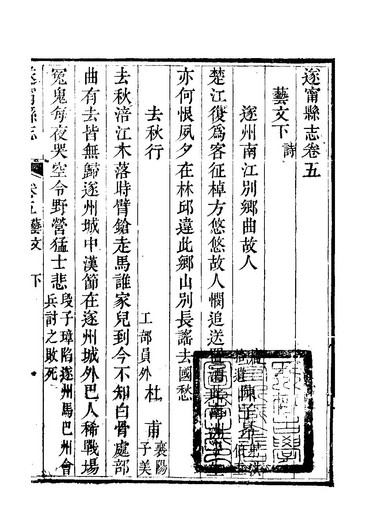 遂甯縣志卷五
藝文下 詩
遂州南江別鄉曲故人 拾遺陳子昂
楚江復爲客征棹方悠悠故人憫追送置酒此南洲平生
亦何恨夙夕在林邱違此鄉山別長謠去國愁
去秋行 工部員外 杜甫 襄陽 子美
去秋涪江木落時臂鎗走馬誰家兒到今不知白骨處部
曲有去皆無歸遂州城中漢節在遂州城外巴人稀戰場
冤鬼每夜哭空令野營猛士悲 段子璋陷遂州馬巴州會
兵討之敗死
遂甯縣志 卷五藝文 下